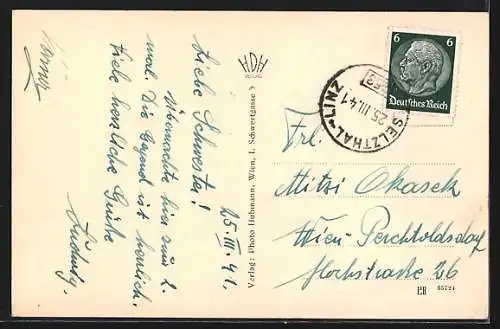 25. III. 41.
Liebe Schwester!
Übernachte hier zum 2.
mal. Die Gegend ist herrlich.
Viele herzliche Grüße
Ludwig
HDH
Verlag: Photo Huhmann, Wien, 1. Schwertgasse 3
6 6
Deutsches Reich
SELZTHAL-LINZ
25.III.41
Frl.
Mitzi Okasek
Wien-Perchtoldsdorf
26